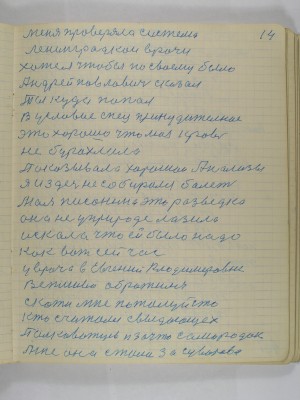 14
меня проверяла система
Ленинградкои врачи
хотел чтобы по своиму было
Андрей павлович сказал
Ты куда попал
В условие спец принудителное
это хорошо что моя кровь
не бурахлила
Показывала хорошои Анализы
Я издесь не собирался болет
Моя писонина это разведка
она не у природе лазила
искала что ей было надо
как вот сей час
у врача в Евгении Владимировне
Вежливо обратится
скажи мне пожалуйсто
кто считали
мне она стала за